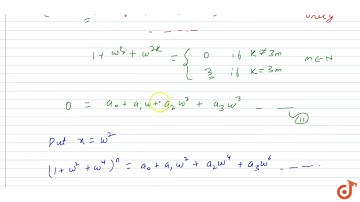 unity
1 + ω^k + ω^2k = { 0 if k ≠ 3m m ∈ N
3 if k = 3m
0 = a₀ + a₁ω + a₂ω² + a₃ω³ - - - (11)
Put x = ω²
(1 + ω² + ω⁴)ⁿ = a₀ + a₁ω² + a₂ω⁴ + a₃ω⁶ - - - -